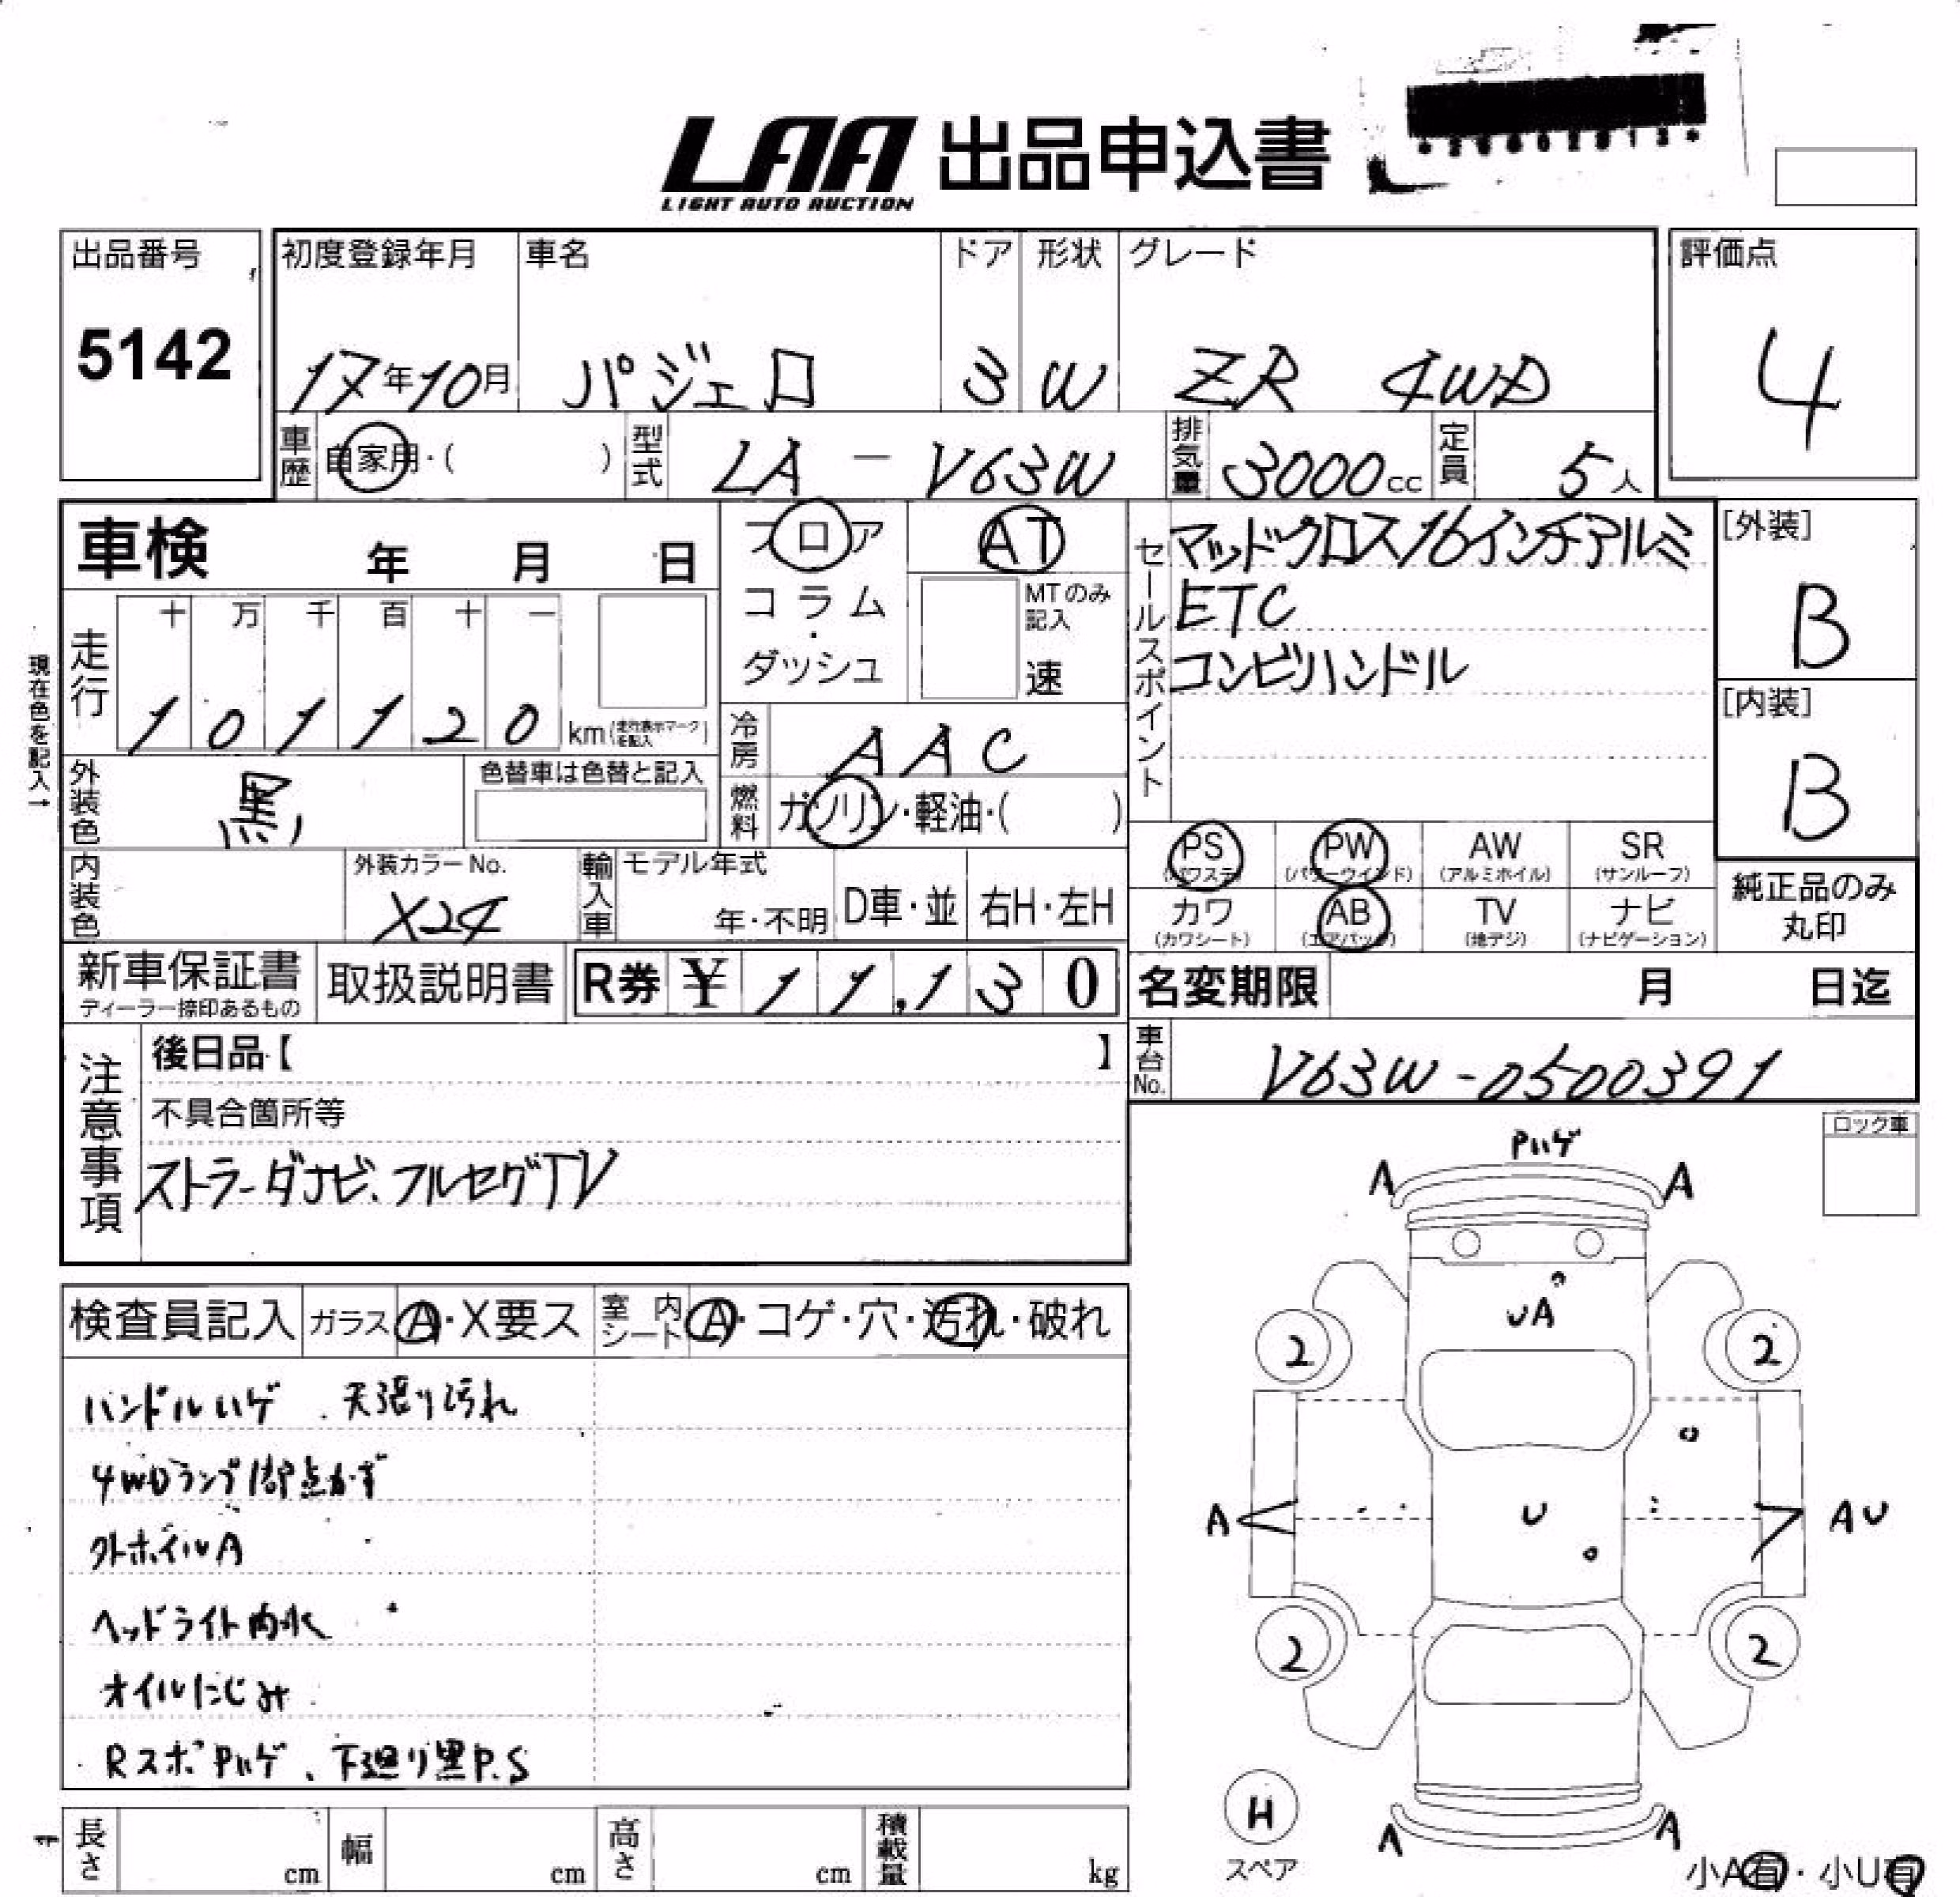 LAA 出品申込書
LIGHT AUTO AUCTION
出品番号
5142
初度登録年月
17年10月
車名
パジェロ
ドア
3
形状
W
グレード
ZR 4WD
評価点
4
車歴
自家用・( )
型式
LA - V63W
排気量
3000cc
定員
5人
車検 年 月 日
フロア
コラム
・
ダッシュ
AT
MTのみ
記入
速
セールスポイント
マッドクロス16インチアルミ
ETC
コンビハンドル
[外装]
B
[内装]
B
現在色を記入→
走行
十 万 千 百 十 一
1 0 1 1 2 0 km(走行表示マークを記入)
冷房
AAC
燃料
ガソリン・軽油・( )
外装色
黒
色替車は色替と記入
内装色
外装カラーNo.
X24
輸入車
モデル年式
年・不明
D車・並
右H・左H
PS
(パワステ)
PW
(パワーウインド)
AW
(アルミホイル)
SR
(サンルーフ)
カワ
(カワシート)
AB
(エアバック)
TV
(地デジ)
ナビ
(ナビゲーション)
純正品のみ
丸印
新車保証書
ディーラー捺印あるもの
取扱説明書
R券 ¥ 11,130
名変期限 月 日迄
注意事項
後日品【 】
不具合箇所等
ストラーダナビ、フルセグTV
車台No.
V63W-0500391
ロック車
検査員記入
ガラス A・X要ス
室内シート A・コゲ・穴・汚れ・破れ
ハンドルハゲ、天張り汚れ
4WDランプ1部点かず
外ホイルA
ヘッドライト内水
オイルにじみ
Rスポ Pハゲ、下廻り黒P.S
Pハゲ
A A
UA
2 2
A U AU
2 2
H
スペア
A A
小A有・小U有
長さ cm
幅 cm
高さ cm
積載量 kg